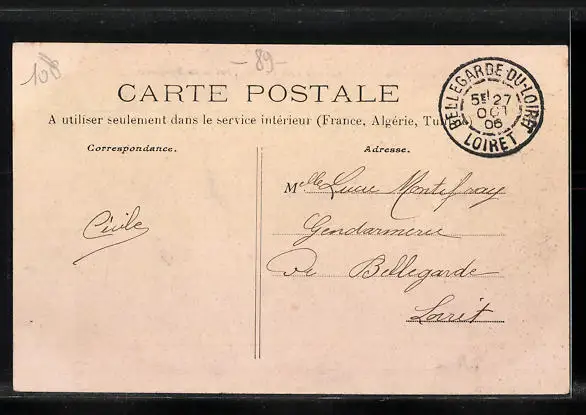 108
- 89 -
CARTE POSTALE
A utiliser seulement dans le service intérieur (France, Algérie, Tunisie)
Correspondance.
Adresse.
BELLEGARDE-DU-LOIRET
5E 27
OCT
06
LOIRET
Melle Lucie Montifray
Gendarmerie
De Bellegarde
Loiret
Cécile